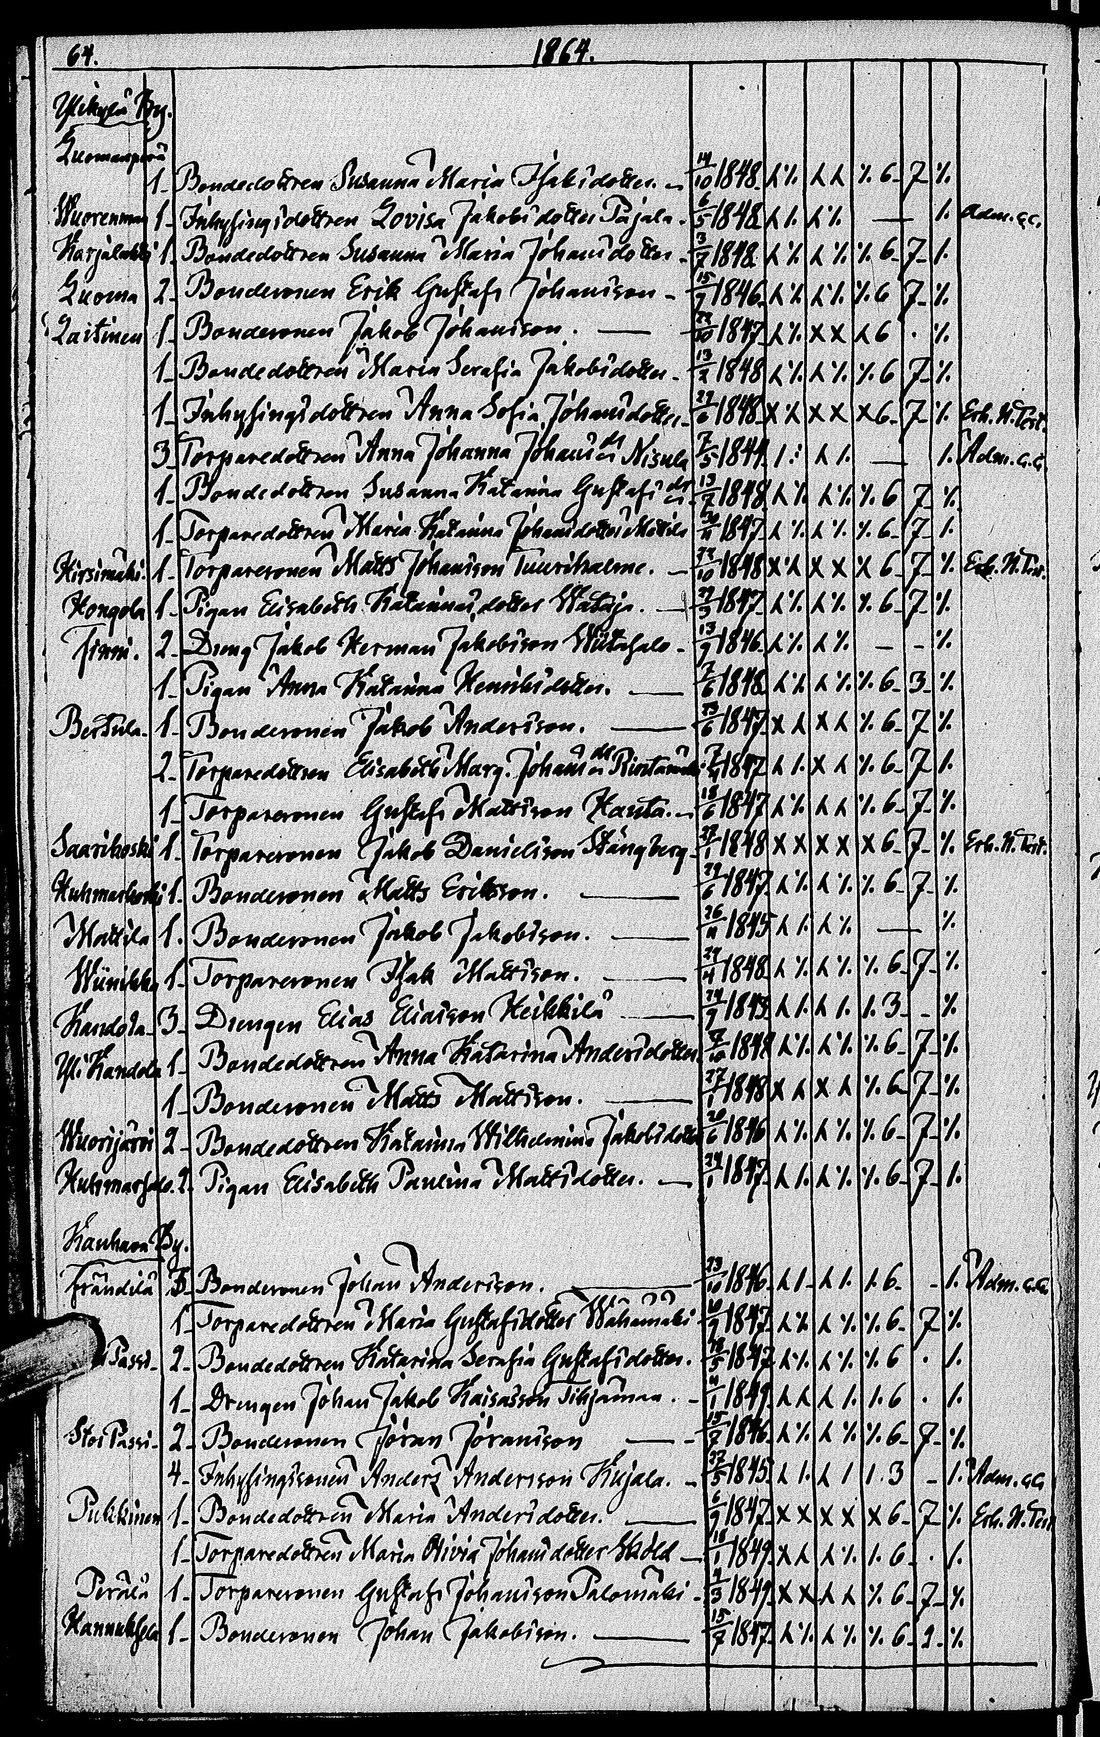 64.
1864.
Ylikylä By.
Luomanperä
1 Bondedottren Susanna Maria Isaksdotter. 14/10 1848 6 7 %
Wuorenmaa 1 Inhysingsdottren Lovisa Jakobsdotter Pajala. 6/5 1848 — 1. Adm. c.c.
Karjalahti 1 Bondedottren Susanna Maria Johansdotter 3/7 1848 % 6 7 1.
Luoma 2 Bondesonen Erik Gustafs Johansson 15/7 1846 % 6 7 %
Laitinen 1 Bondesonen Jakob Johansson. — 1847 6 . %
1 Bondedottren Maria Serafia Jakobsdotter 13/2 1848 % 6 7 %
1 Inhysingsdottren Anna Sofia Johansdotter 27/6 1848 x x x x 6 7 % Erh. N. Test.
3 Torparedottren Anna Johanna Johans dr Nisula 7/5 1849 — 1. Adm. c.c.
1 Bondedottren Susanna Katarina Gustafs dr 1848 % 6 7 %
1 Torparedottren Maria Katarina Johansdotter Mattila 1847 % 6 7 1.
Hirsimäki. 1 Torparesonen Matts Johansson Tuurihalme. 22/10 1848 x x x x 6 7 % Erh. N. Test.
Hongola 1 Pigan Elisabeth Katarina dotter 1847 % 6 7 %
Finni. 2 Dreng Jakob Herman Jakobsson Wiitasalo 13/9 1846 — - %
1 Pigan Anna Katarina Henriksdotter. — 7/6 1848 % 6 3 %
Bertula 1 Bondesonen Jakob Andersson. — 23/6 1847 % 6 7 %
2 Torparedottren Elisabeth Marg. Johans dr Rintamäki 1847 % 6 7 1.
1 Torparesonen Gustafs Mattsson Hauta. 18/6 1847 % 6 7 %
Saarikoski 1 Torparesonen Jakob Danielsson Stångberg 27/1 1848 x x x x x 6 7 % Erh. N. Test.
Huhmarkoski 1 Bondesonen Matts Eriksson. — 29/6 1847 % 6 7 %
Mattila 1. Bondesonen Jakob Jakobsson. — 26/11 1845 — %
Wiinikka 1 Torparesonen Isak Mattsson. — 1848 % 6 7 %
Kandola 3 Drengen Elias Eliasson Heikkilä — 24/9 1843 1. 3 - %
Yl. Kandola 1 Bondedottren Anna Katarina Andersdotter 1848 % 6 7 %
1 Bondesonen Matts Mattsson. — 27/1 1848 % 6 7 %
Wuorijärvi 2 Bondedottren Katarina Wilhelmina Jakobsdotter 20/6 1846 % 6 7 %
Huhmarsalo 2 Pigan Elisabeth Paulina Mattsdotter. — 24/1 1847 % 6 7 1.
Kauhava By.
Frändilä 5 Bondesonen Johan Andersson. — 23/10 1846 6 - 1. Adm. c.c.
1 Torparedottren Maria Gustafsdotter Wähämäki 1847 % 6 7 %
Passi 2 Bondedottren Katarina Serafia Gustafsdotter. 1847 % 6 . 1.
1 Drengen Johan Jakob Kaisasson Tihjämaa. 1849 1. 6 . 1.
Stor Passi 2 Bondesonen Jöran Jöransson — 15/7 1846 % 6 7 %
4 Inhysingssonen Anders Andersson Kujala. 27/5 1845 1. 3 - 1. Adm. c.c.
Pukkinen 1 Bondedottren Maria Andersdotter. — 6/9 1847 x x x x x 6 7 % Erh. N. Test.
1 Torparedottren Maria Olivia Johansdotter Sköld 18/1 1849 1. 6 . 1.
Perälä 1 Torparesonen Gustafs Johansson Palomäki 1849 % 6 7 %
Hannuksela 1 Bondesonen Johan Jakobsson. — 15/7 1847 % 6 2 %